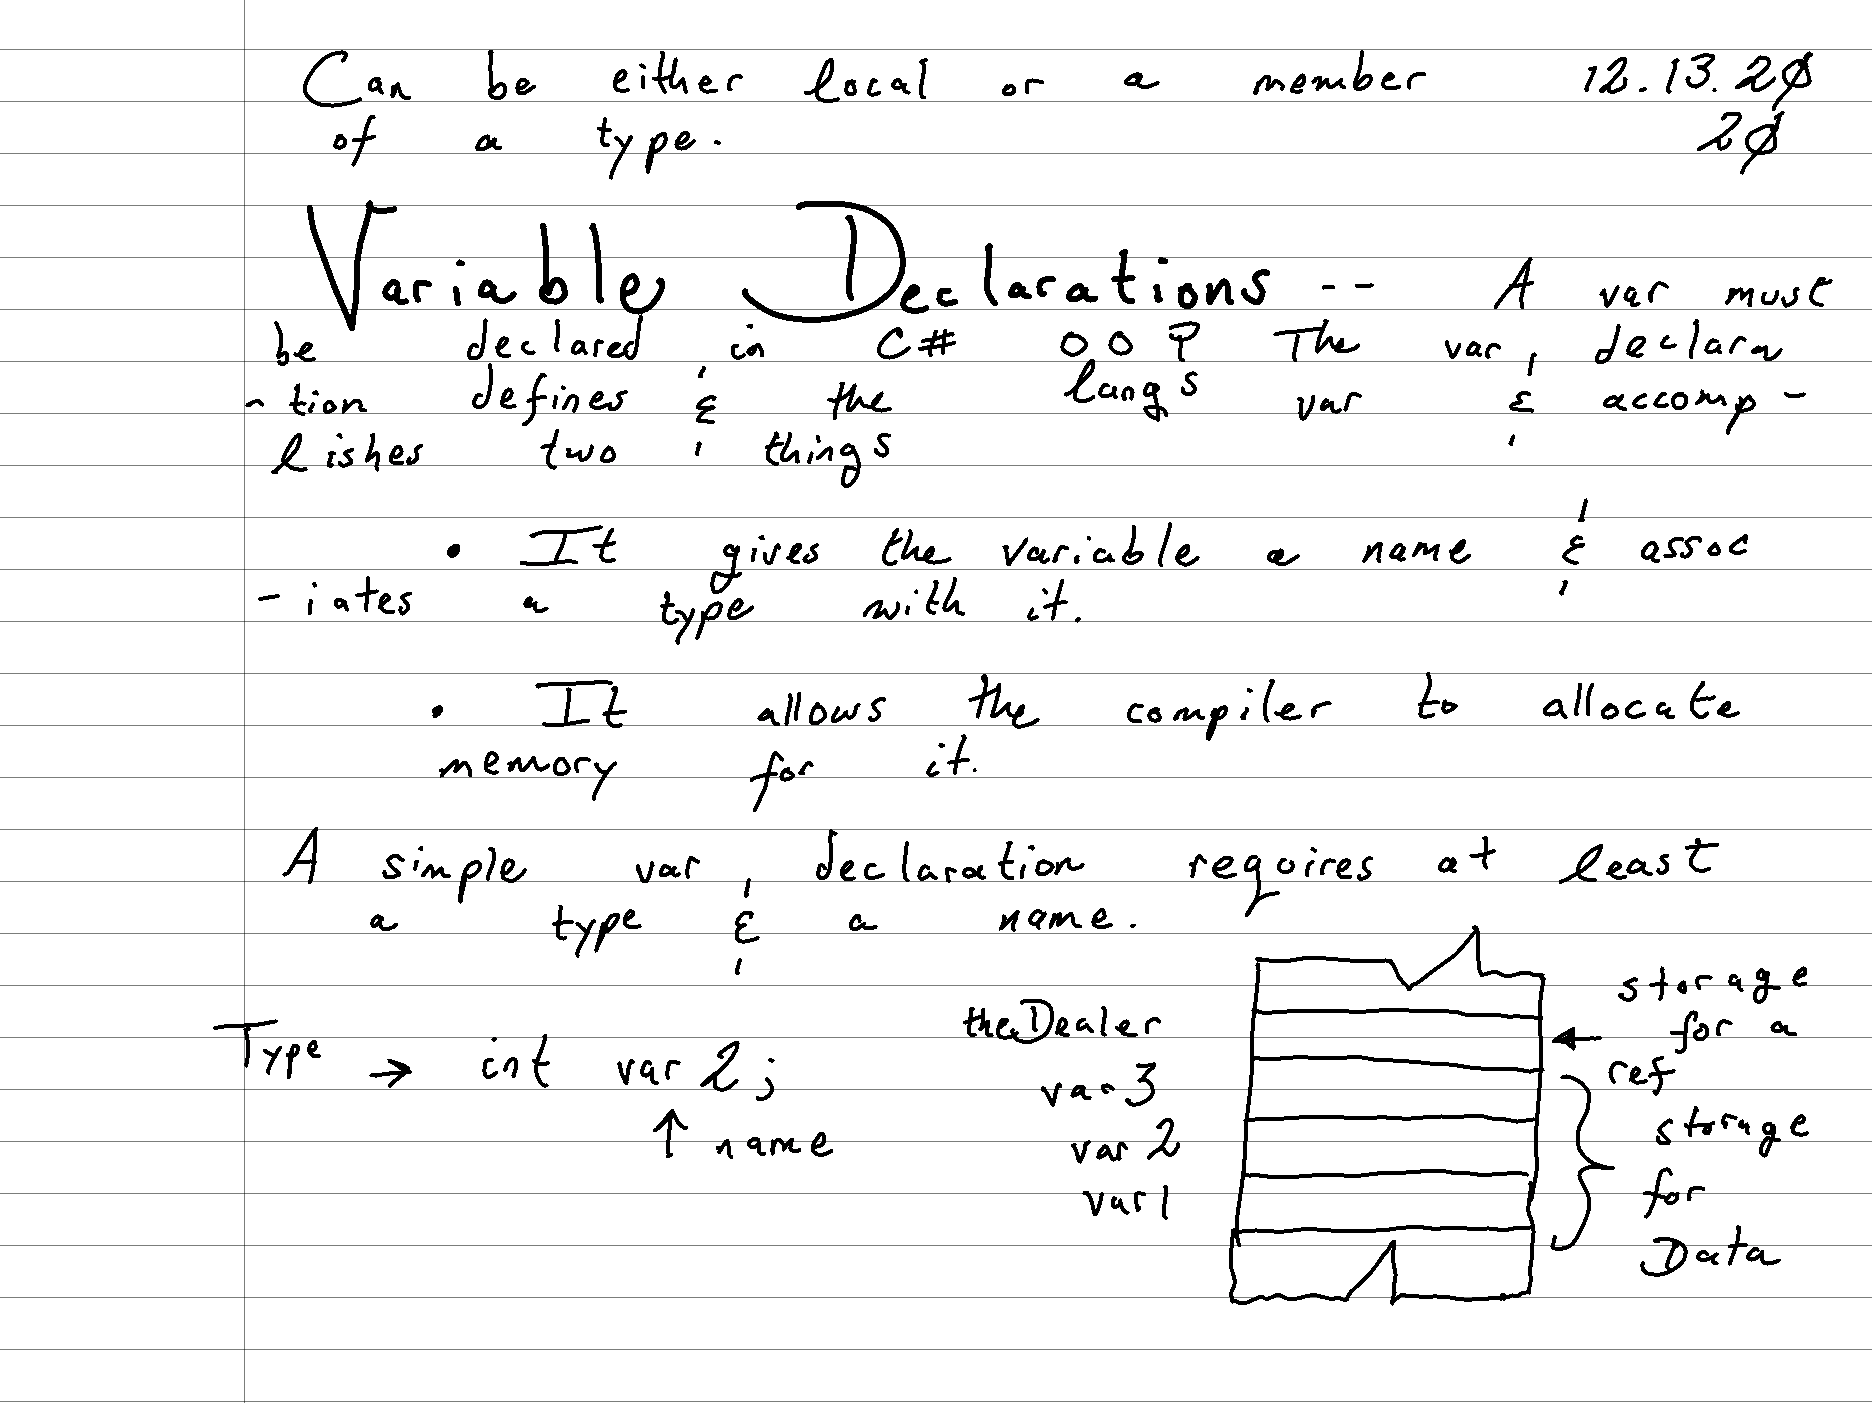 Can be either local or a member 12.13.20
of a type. 20
Variable Declarations -- A var must
be declared in C# OOP The var, declara
-tion defines & the langs var & accomp-
lishes two things
• It gives the variable a name & assoc
-iates a type with it.
• It allows the compiler to allocate
memory for it.
A simple var, declaration requires at least
a type & a name.
Type → int var2;
↑ name
theDealer
var3
var2
var1
storage
← for a
ref
storage
for
Data